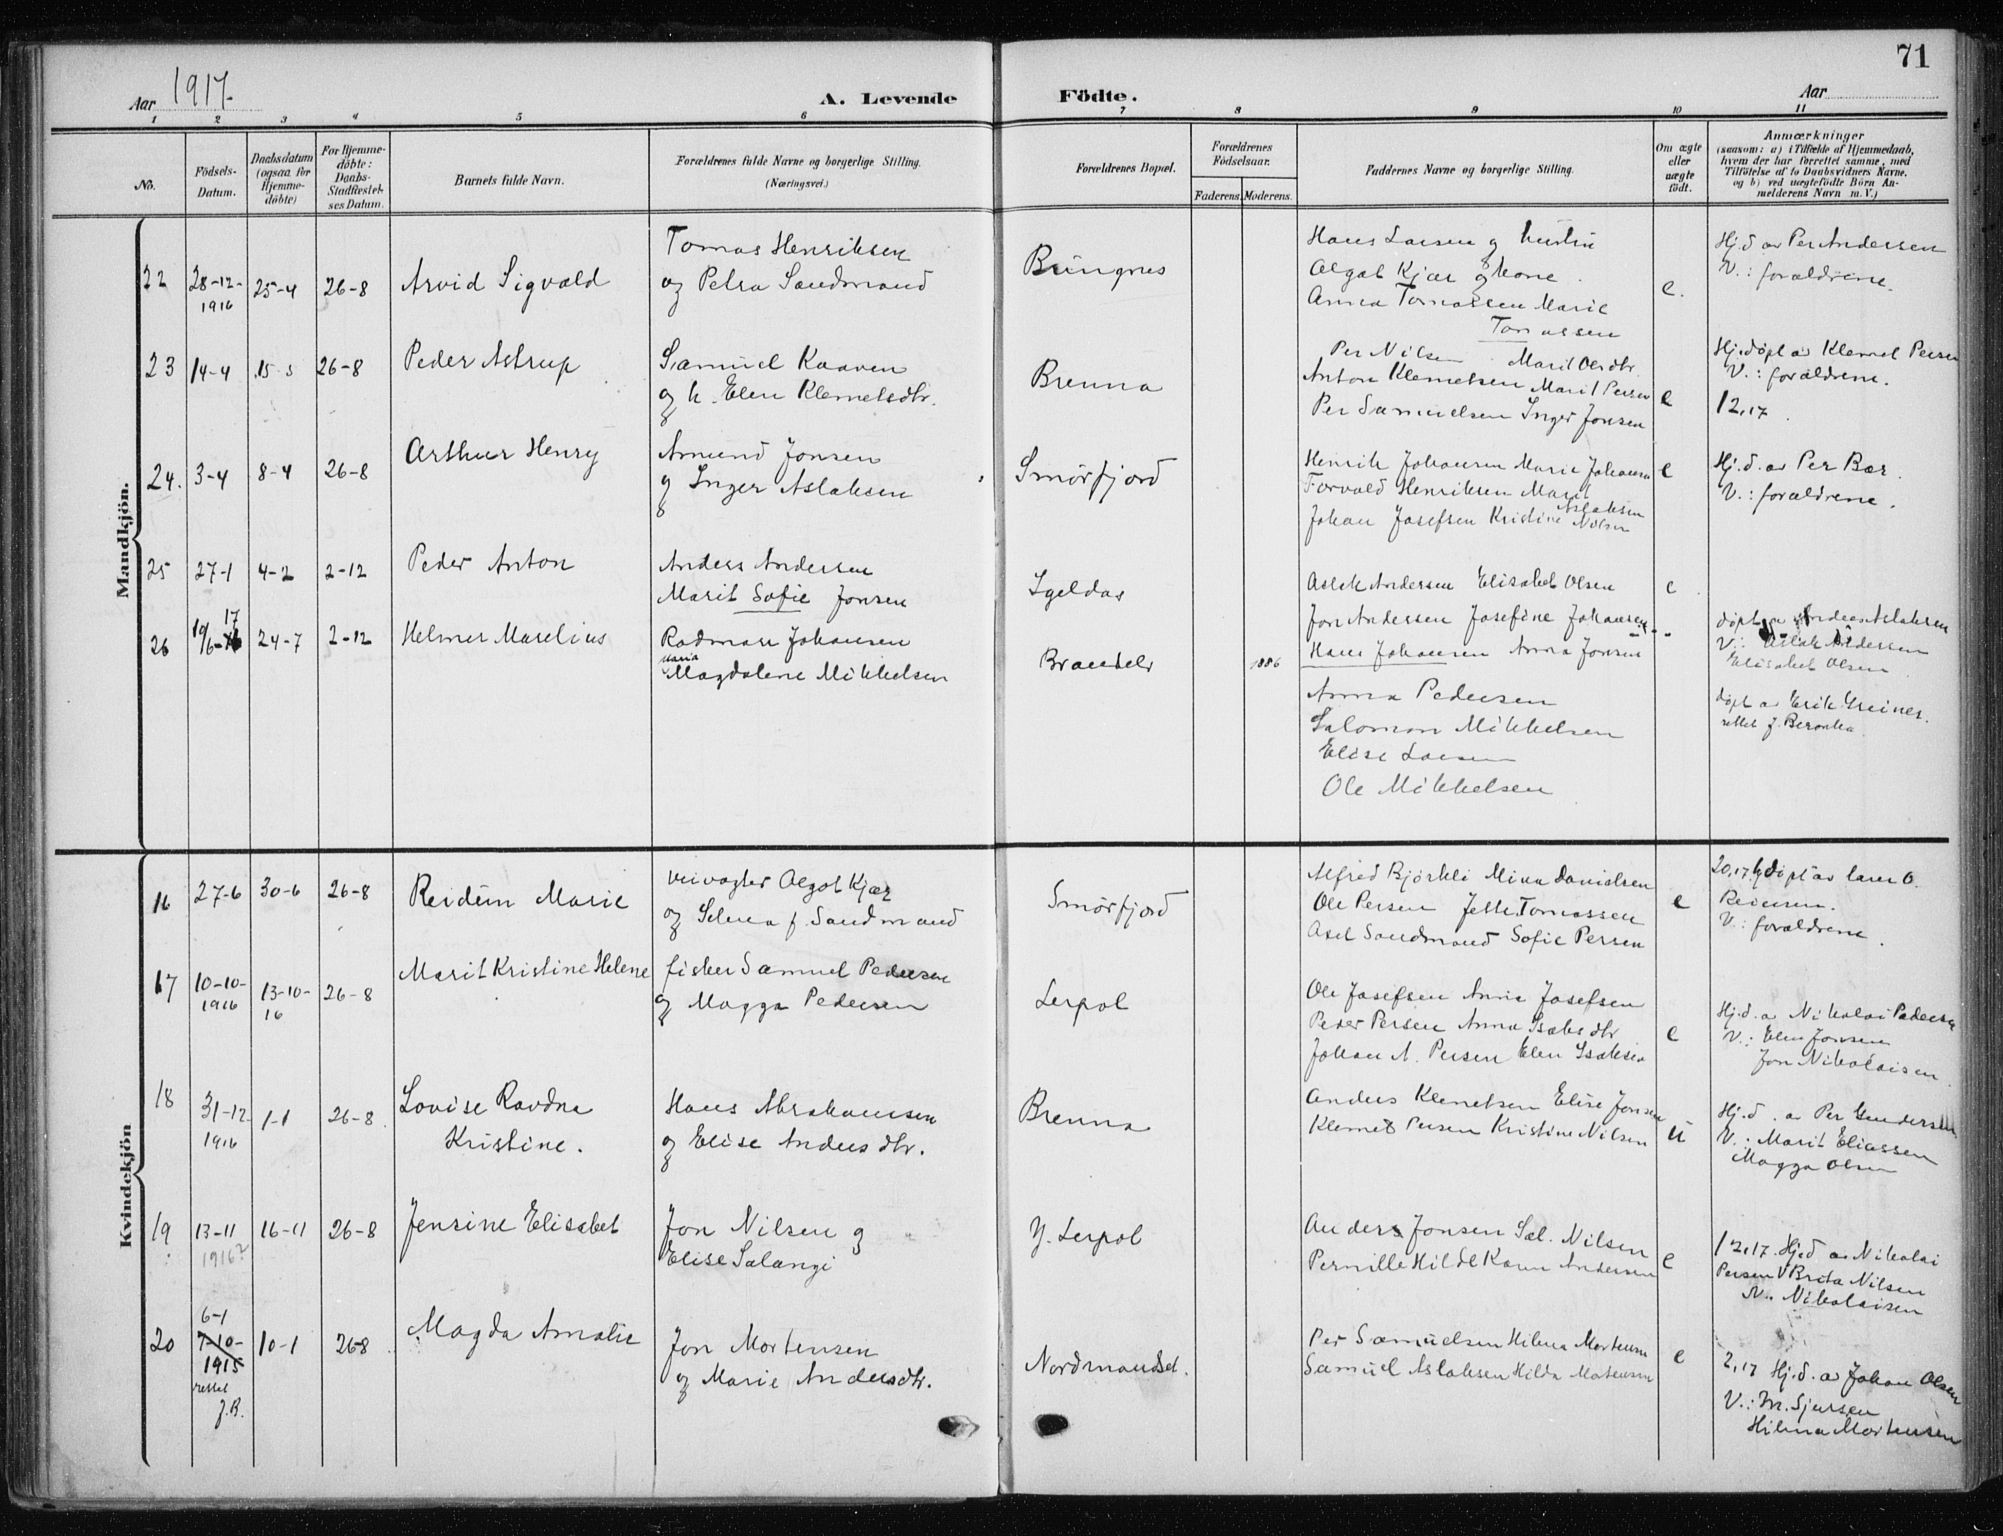 71
Aar 1917.
A. Levende Födte.
Aar
1 2 3 4 5 6 7 8 9 10 11
No.
Födsels-Datum.
Daabsdatum (ogsaa for Hjemme-döbte)
For Hjemme-döbte: Daabs-Stadfæstel-ses Datum.
Barnets fulde Navn.
Forældrenes fulde Navne og borgerlige Stilling.
(Næringsvei.)
Forældrenes Bopæl.
Forældrenes Födselsaar.
Faderens. Moderens.
Faddernes Navne og borgerlige Stilling.
Om ægte eller uægte födt.
Anmærkninger
(saasom: a) i Tilfælde af Hjemmedaab, hvem der har forrettet samme, med Tilföielse af to Daabsvidners Navne. og b) ved uægtefödte Börn An-melderens Navn m. V.)
Mandkjön.
22 28-12-1916 25-4 26-8 Arvid Sigvald
Tomas Henriksen
og Petra Sandmand
Bringnes
Hans Larsen og hustru
Algot Kjær og kone.
Anna Tomassen Marie
Tomassen
e.
Hj.d av Per Andersen
V.: forældrene.
23 14-4 15-5 26-8 Peder Astrup
Samuel Kaaven
og h. Elen Klemetsdtr.
Brenna
Per Nilsen Marit Olsdtr.
Anton Klemetsen Marit Persen
Per Samuelsen Inger Jonsen
e
Hj.døpt av Klemet Persen
V.: forældrene.
12,17.
24. 3-4 8-4 26-8 Arthur Henry
Amund Jonsen
og Inger Aslaksen
Smørfjord
Henrik Johansen Marie Johansen
Torvald Henriksen Marit
Aslaksen
Johan Josefsen Kristine Nilsen
e
Hj.d. av Per Bær.
V.: forældrene.
25 27-1 4-2 2-12 Peder Anton
Anders Andersen
Marit Sofie Jonsen
Igeldas
Aslak Andersen Elisabet Olsen
Jon Andersen Josefine Johansen
e
døpt av Anders Aslaksen
V.: Aslak Andersen
Elisabet Olsen
26 19/6-17 24-7 2-12 Helmer Marelius
Rodmar Johansen
Maria
Magdalene Mikkelsen
Brandelv
1886
Hans Johansen Anna Jonsen
Anna Pedersen
Salomon Mikkelsen
Elise Larsen
Ole Mikkelsen
døpt av Erik Greiner.
rettet J. Beronka
Kvindekjön
16 27-6 30-6 26-8 Reidun Marie
veivogter Algot Kjær
og Selma f. Sandmand
Smørfjord
Alfred Björkli Mina Danielsen
Ole Persen Jette Tomassen
Axel Sandmand Sofie Persen
e
20,17 Hjdøpt av lærer O.
Reiersen.
V: forældrene.
17 10-10-1916 13-10-16 26-8 Marit Kristine Helene
fisker Samuel Pedersen
og Magga Pedersen
Lerpol
Ole Josefsen Anna Josefsen
Peder Persen Anna Isaksdtr
Johan A. Persen Elen Isaksen
e
Hj.d. av Nikolai Pedersen
V.: Elen Jonsen
Jon Nikolaisen.
18 31-12 1916 1-1 26-8 Lovise Ravdna
Kristine.
Hans Abrahamsen
og Elise Andersdtr.
Brenna
Anders Klemetsen Elise Jonsen
Klemet Persen Kristine Nilsen
u
Hj.d. av Per Gundersen
V.: Marit Eliassen
Magga Olsen
19 13-11 1916? 16-11 26-8 Jensine Elisabet
Jon Nilsen og
Elise Salangi
Y. Lerpol
Anders Jonsen Sal. Nilsen
Pernille Hilde Karen Andersen
e
12,17. Hj.d av Nikolai
Persen V Brita Nilsen
N. Nikolaisen
20 6-1 7-10-1915 10-1 26-8 Magda Amalie
rettet
J.B.
Jon Mortensen
og Marie Andersdtr.
Nordmandset.
Per Samuelsen Hilma Mortensen
Samuel Aslaksen Hilda Mortensen
e
2,17 Hj.d. av Johan Olsen
V.: M. Sjursen
Hilma Mortensen